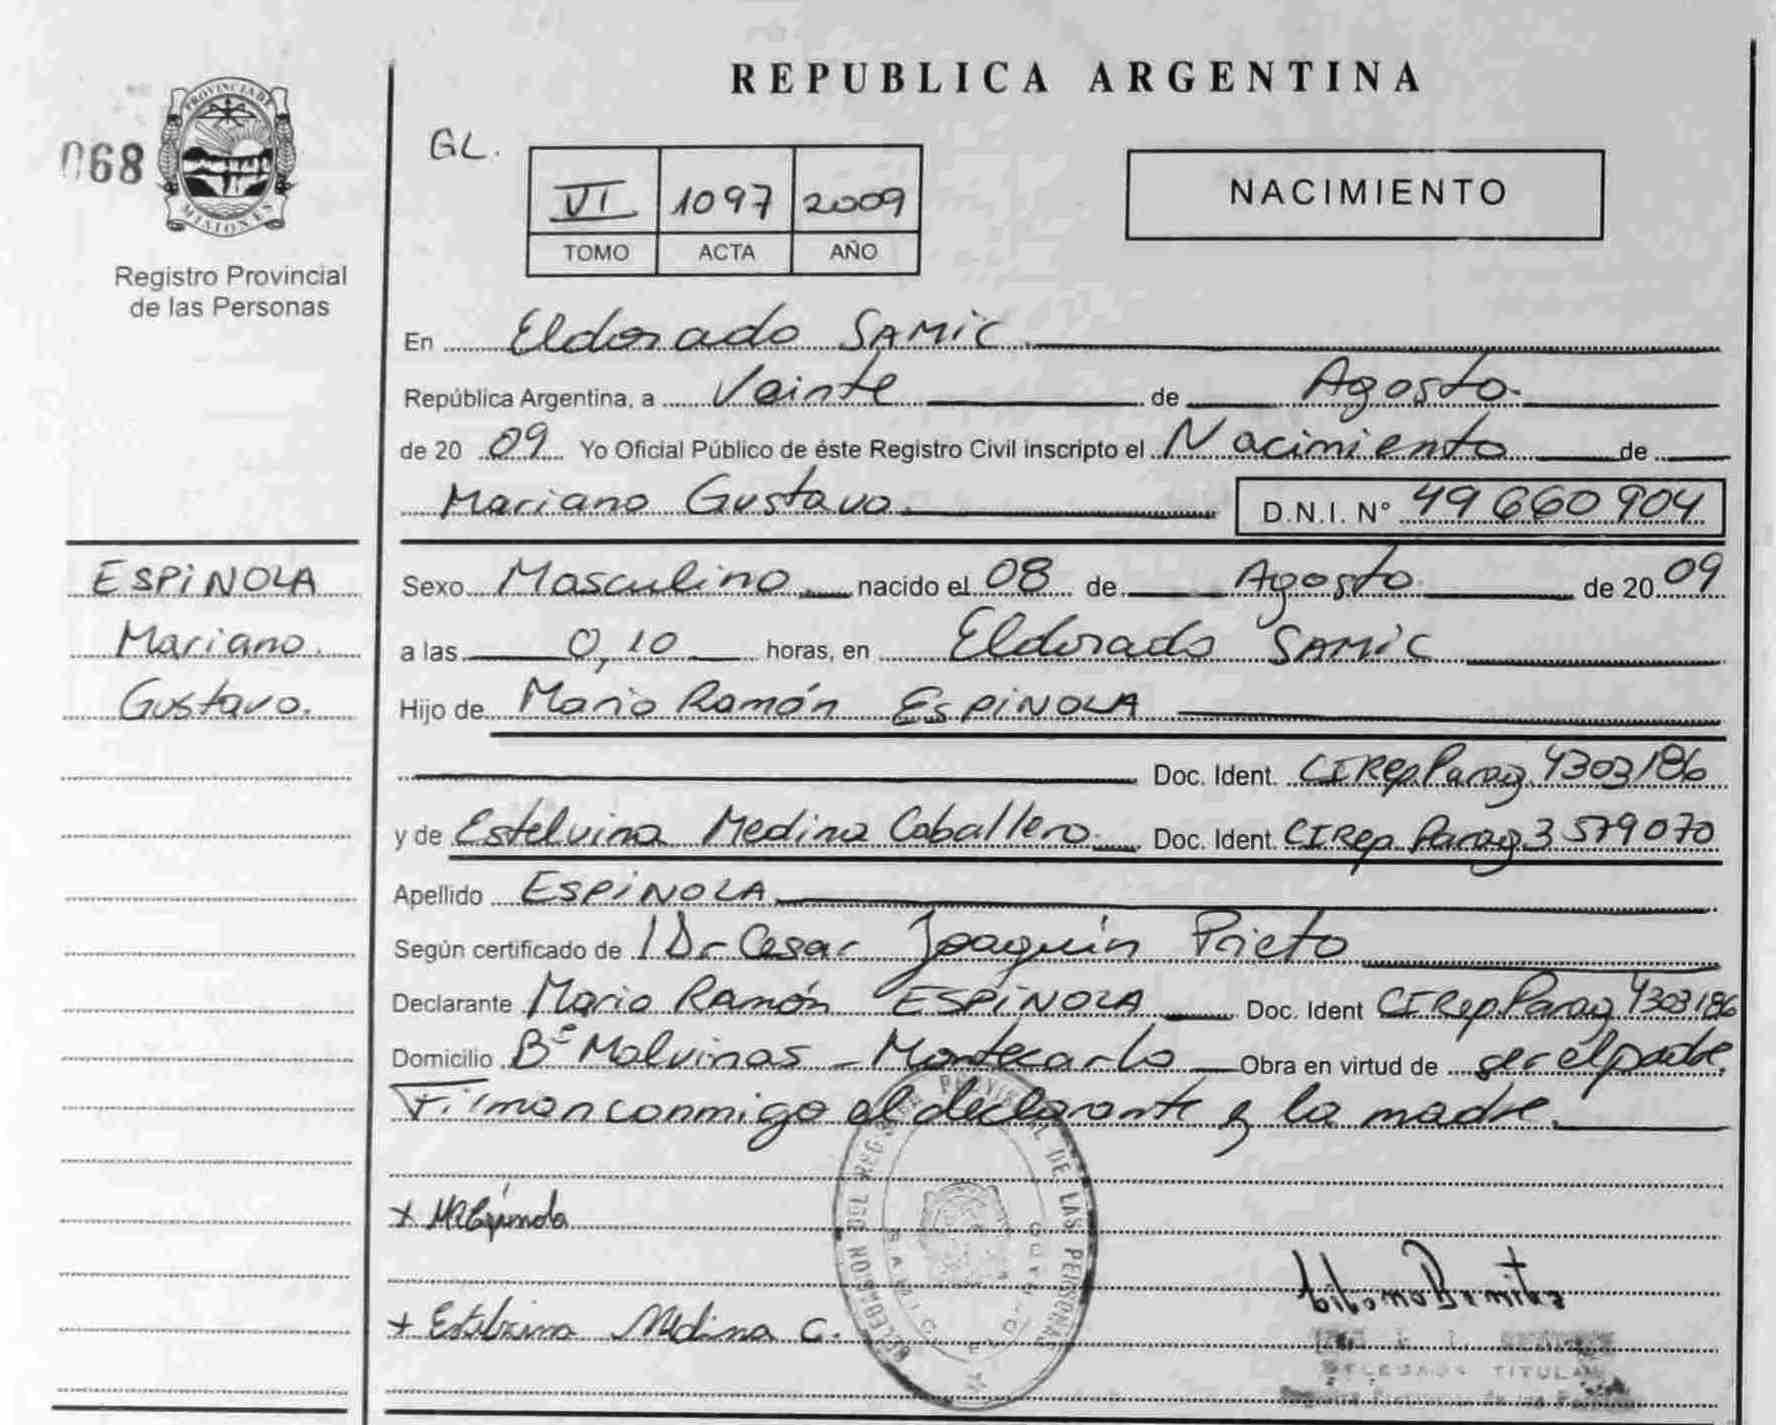 REPUBLICA ARGENTINA
068
PROVINCIA DE
MISIONES
Registro Provincial
de las Personas
GL.
VI 1097 2009
TOMO ACTA AÑO
NACIMIENTO
En Eldorado SAMIC
República Argentina, a Veinte de Agosto
de 20 09 Yo Oficial Público de éste Registro Civil inscripto el Nacimiento de
Mariano Gustavo. D.N.I. N° 49 660 904
ESPINOLA
Mariano
Gustavo.
Sexo Masculino nacido el 08 de Agosto de 20 09
a las 0,10 horas, en Eldorado SAMIC
Hijo de Mario Ramón ESPINOLA
Doc. Ident. CIRep.Parag 4303186
y de Estelvina Medina Caballero Doc. Ident. CIRep Parag 3 579070
Apellido ESPINOLA
Según certificado de 1 Dr Cesar Joaquín Prieto
Declarante Mario Ramón ESPINOLA Doc. Ident CI Rep Parag 4303186
Domicilio B° Malvinas - Montecarlo Obra en virtud de ser el padre.
Firman conmigo el declarante y la madre.
+ MREspinola
+ Estelvina Medina C.
DELEGACION DEL REGISTRO PROVINCIAL DE LAS PERSONAS
DELEGADA TITULAR
Registro Provincial de las Personas